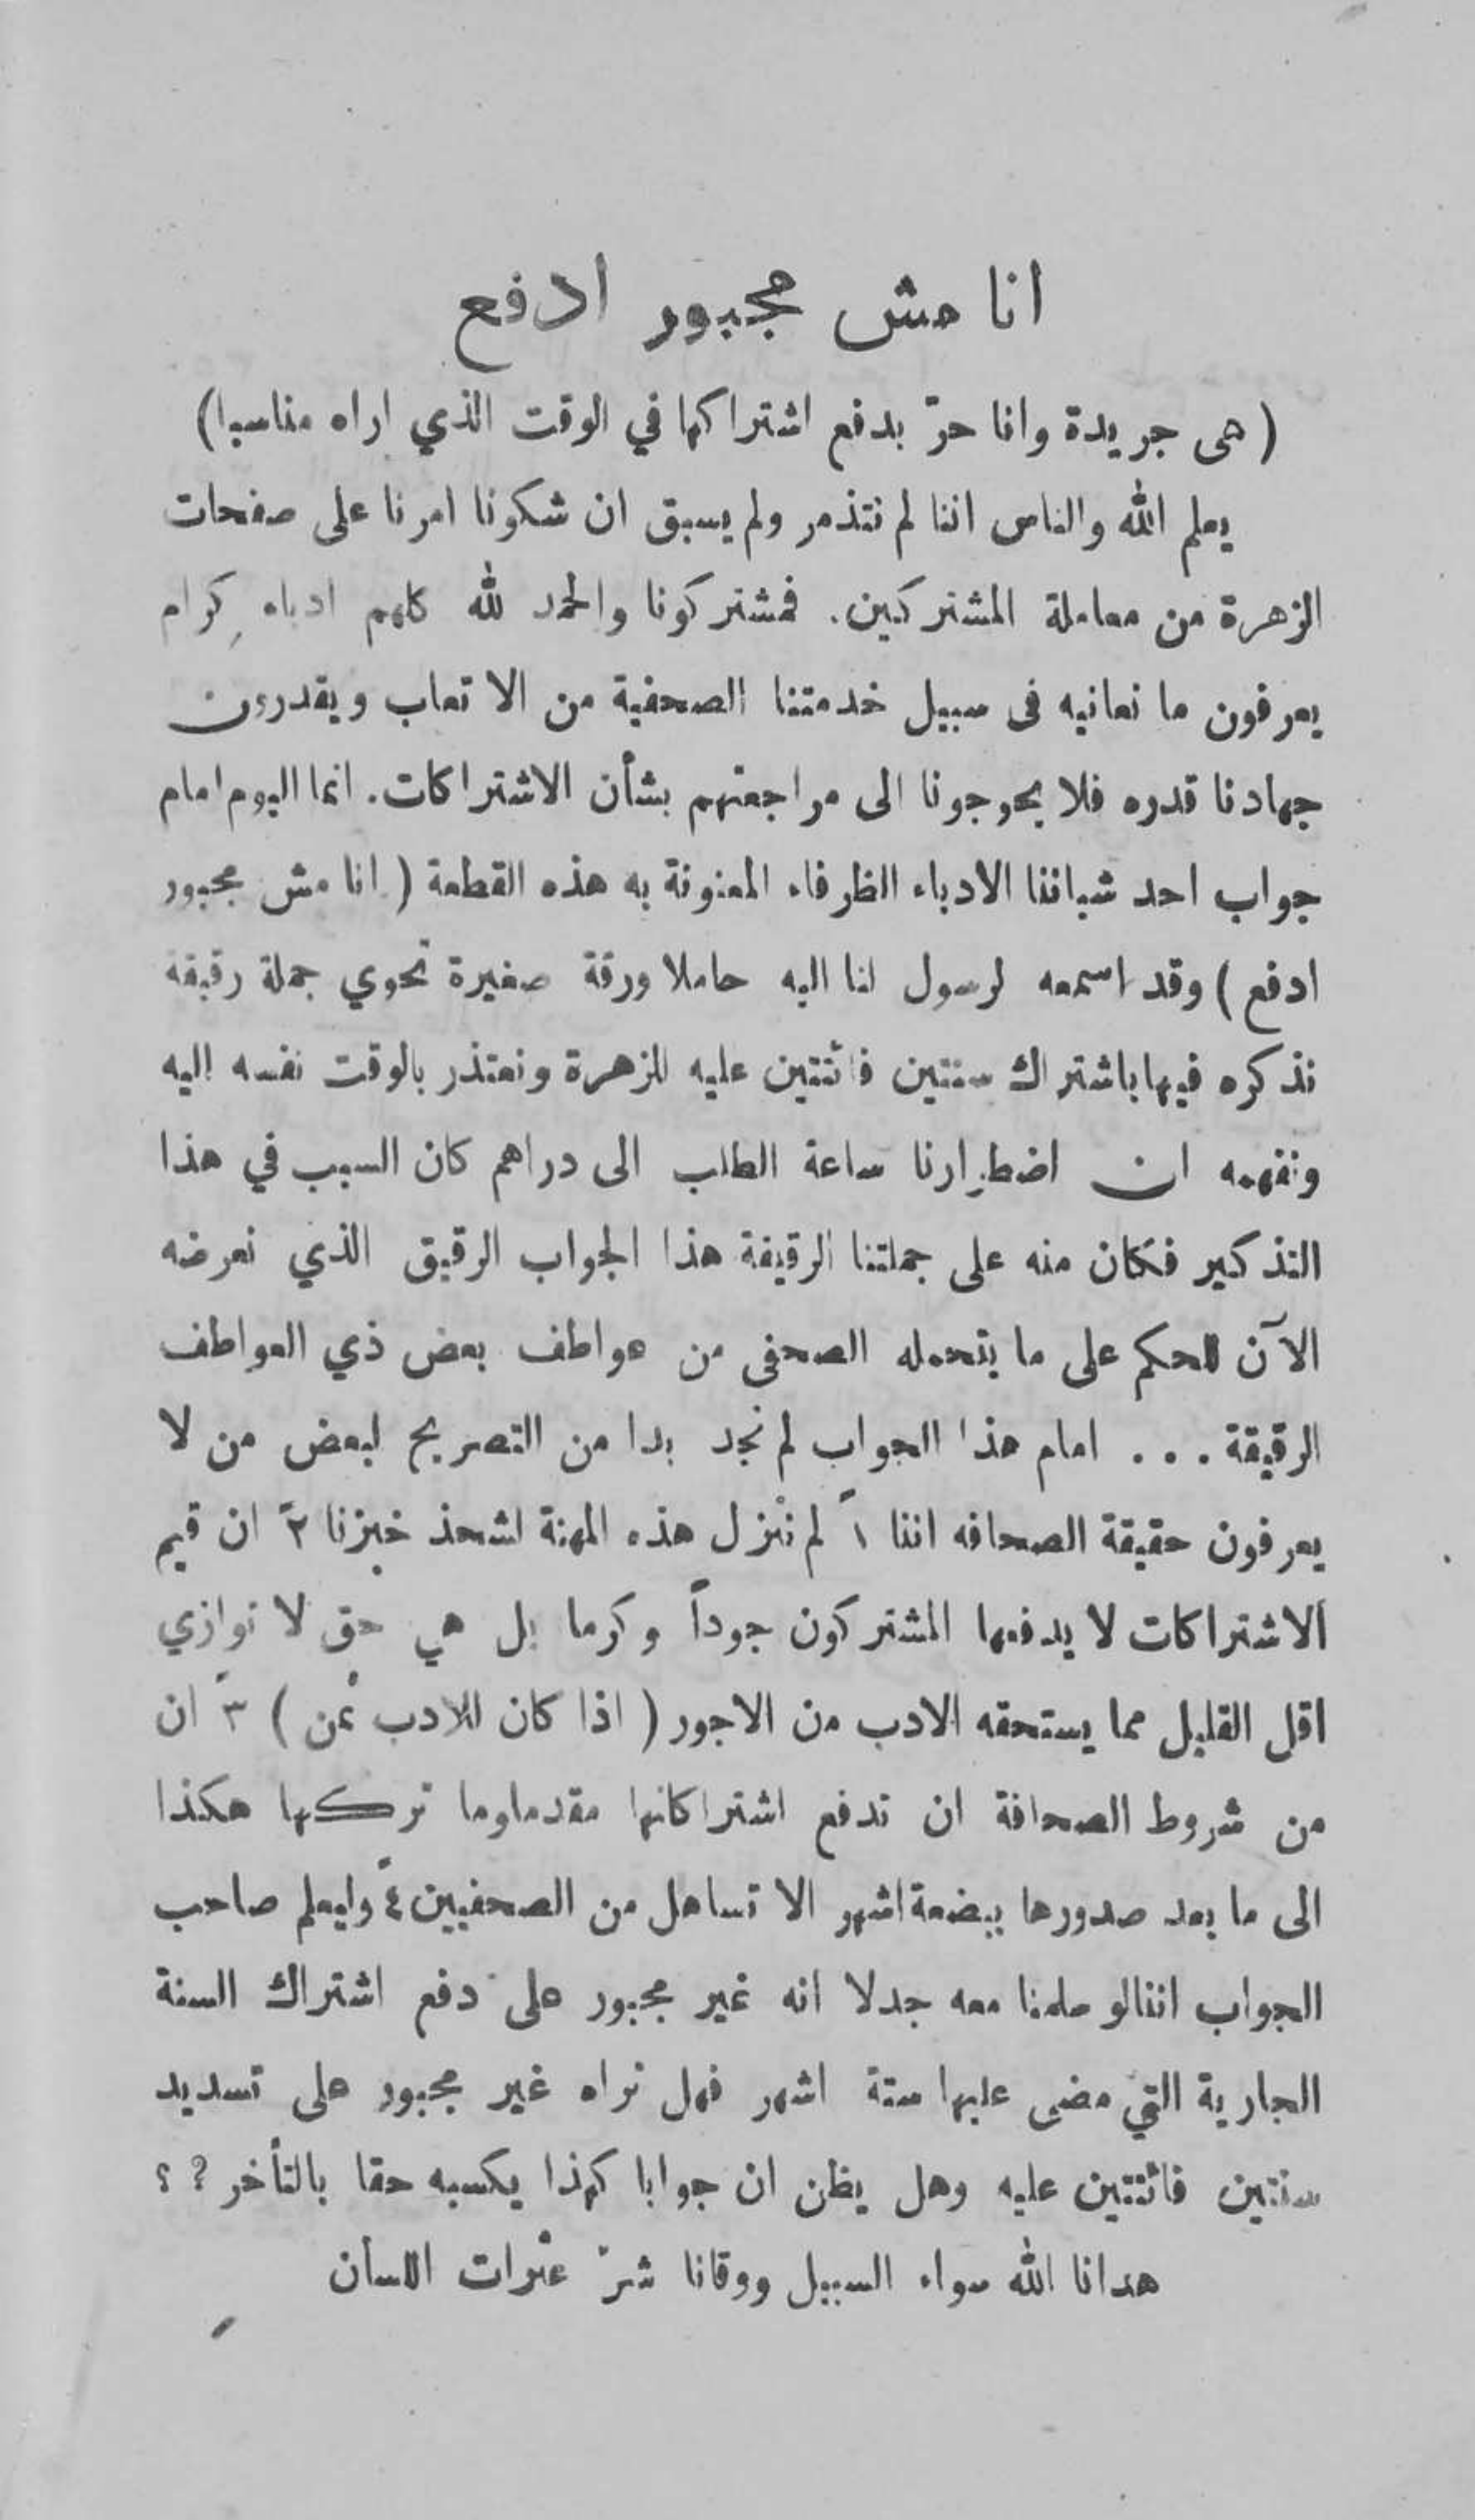 انا مش مجبور ادفع
(هى جريدة وانا حرّ بدفع اشتراكها في الوقت الذي اراه مناسبا)
يعلم الله والناس اننا لم نتذمر ولم يسبق ان شكونا امرنا على صفحات
الزهرة من معاملة المشتركين. فمشتركونا والحمد لله كلهم ادباء كرام
يعرفون ما نعانيه فى سبيل خدمتنا الصحفية من الاتعاب ويقدرون
جهادنا قدره فلا يحوجونا الى مراجعتهم بشأن الاشتراكات. انما اليوم امام
جواب احد شباننا الادباء الظرفاء المعنونة به هذه القطعة (انا مش مجبور
ادفع) وقد اسمعه لرسول لنا اليه حاملا ورقة صغيرة تحوي جملة رقيقة
نذكره فيها باشتراك سنتين فائتتين عليه للزهرة ونعتذر بالوقت نفسه اليه
ونفهمه ان اضطرارنا ساعة الطلب الى دراهم كان السبب في هذا
التذكير فكان منه على جملتنا الرقيقة هذا الجواب الرقيق الذي نعرضه
الآن للحكم على ما يتحمله الصحفى من عواطف بعض ذي العواطف
الرقيقة . . . امام هذا الجواب لم نجد بدا من التصريح لبعض من لا
يعرفون حقيقة الصحافه اننا ١ً لم ننزل هذه المهنة لشحذ خبزنا ٢ً ان قيم
الاشتراكات لا يدفعها المشتركون جوداً وكرما بل هي حق لا توازي
اقل القليل مما يستحقه الادب من الاجور (اذا كان للادب ثمن) ٣ً ان
من شروط الصحافة ان تدفع اشتراكاتها مقدما وما تركها هكذا
الى ما بعد صدورها ببضعة اشهر الا تساهل من الصحفيين ٤ً وليعلم صاحب
الجواب اننا لو سلمنا معه جدلا انه غير مجبور على دفع اشتراك السنة
الجارية التي مضى عليها ستة اشهر فهل نراه غير مجبور على تسديد
سنتين فائتتين عليه وهل يظن ان جوابا كهذا يكسبه حقا بالتأخر ؟ ؟
هدانا الله سواء السبيل ووقانا شرّ عثرات اللسان